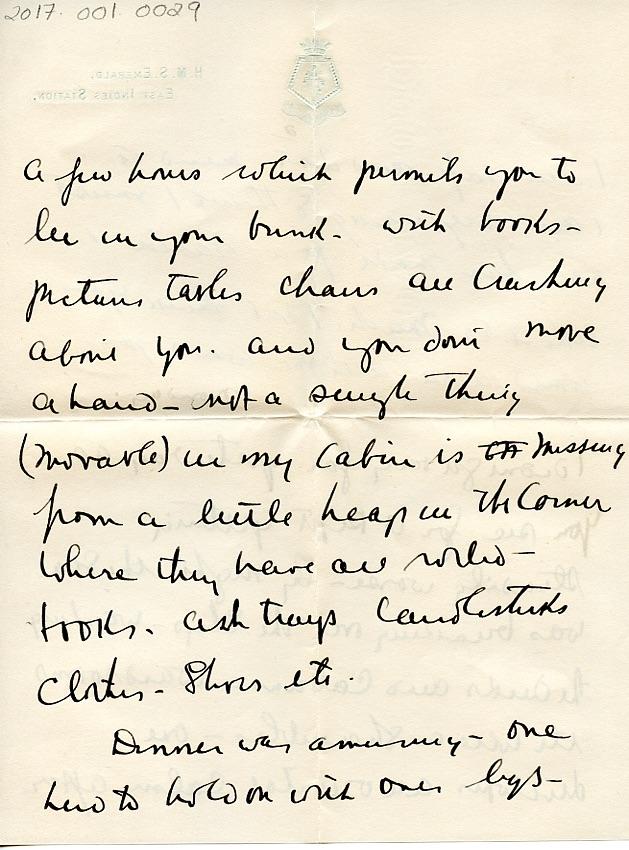 2017.001.0029
H.M.S. EMERALD.
EAST INDIES STATION.
a few hours which permits you to
lie in your bunk - with books -
pictures tables chairs all crashing
about you. and you don't move
a hand - not a single thing
(movable) in my cabin is missing
from a little heap in the corner
where they have all rolled -
books. ash trays candlesticks
clothes - shoes etc.
Dinner was amusing - one
had to hold on with ones legs -